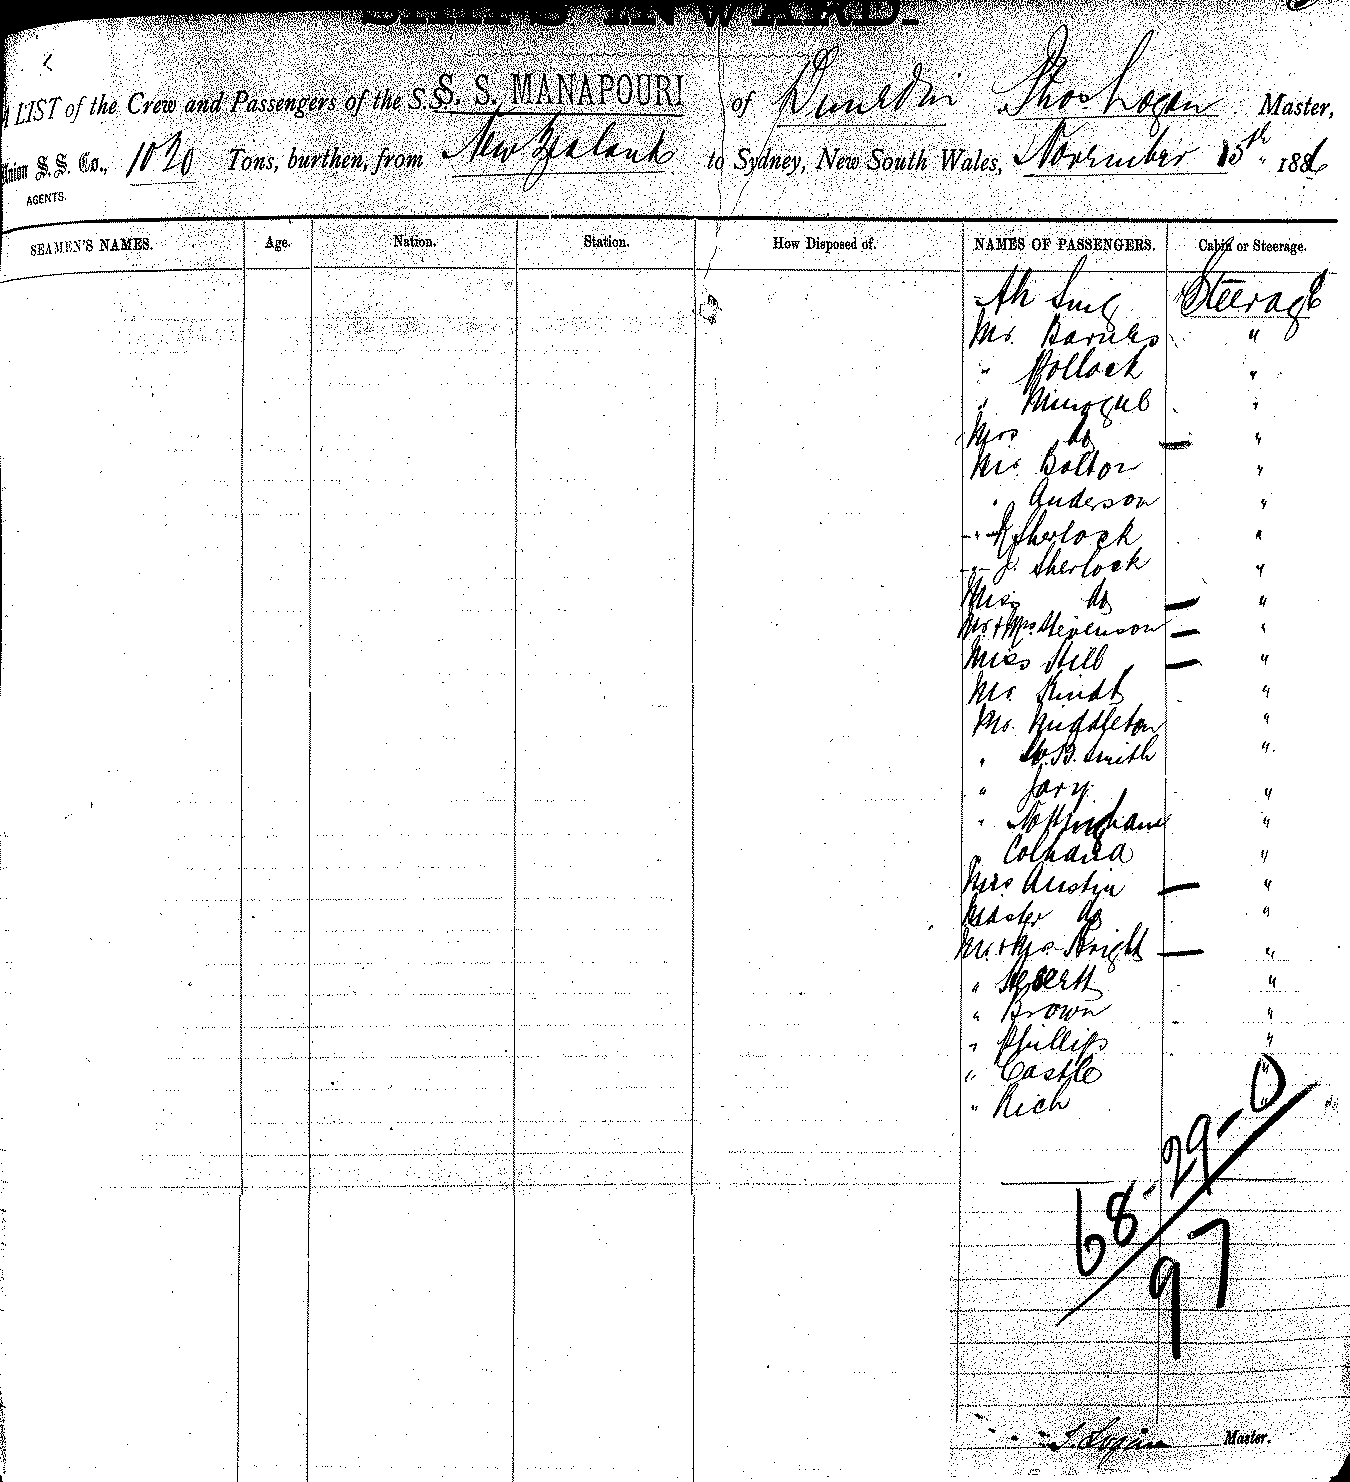 SHIPS INWARD.
A LIST of the Crew and Passengers of the S.S. S. S. MANAPOURI of Dunedin Thos Logan Master,
Union S.S. Co., 1020 Tons, burthen, from New Zealand to Sydney, New South Wales, November 15th 1886
AGENTS.
SEAMEN'S NAMES. Age. Nation. Station. How Disposed of. NAMES OF PASSENGERS. Cabin or Steerage.
Ah Sing Steerage
Mr. Barnes "
" Pollock "
" Minogue "
Mrs do "
Mr. Bolton "
" Anderson "
" Sherlock "
" J. Sherlock "
Miss do "
Mr & Mrs Stevenson "
Miss Hill "
Mr. Kindt "
Mr. Middleton "
" W. B. Smith "
" Jory "
" Nottingham "
" "
Mrs Austin "
Master do "
Mr. & Mrs. Knight "
" "
" Brown "
" Phillips "
" Castle "
" Rich "
68-29-0
97
T. Logan Master.